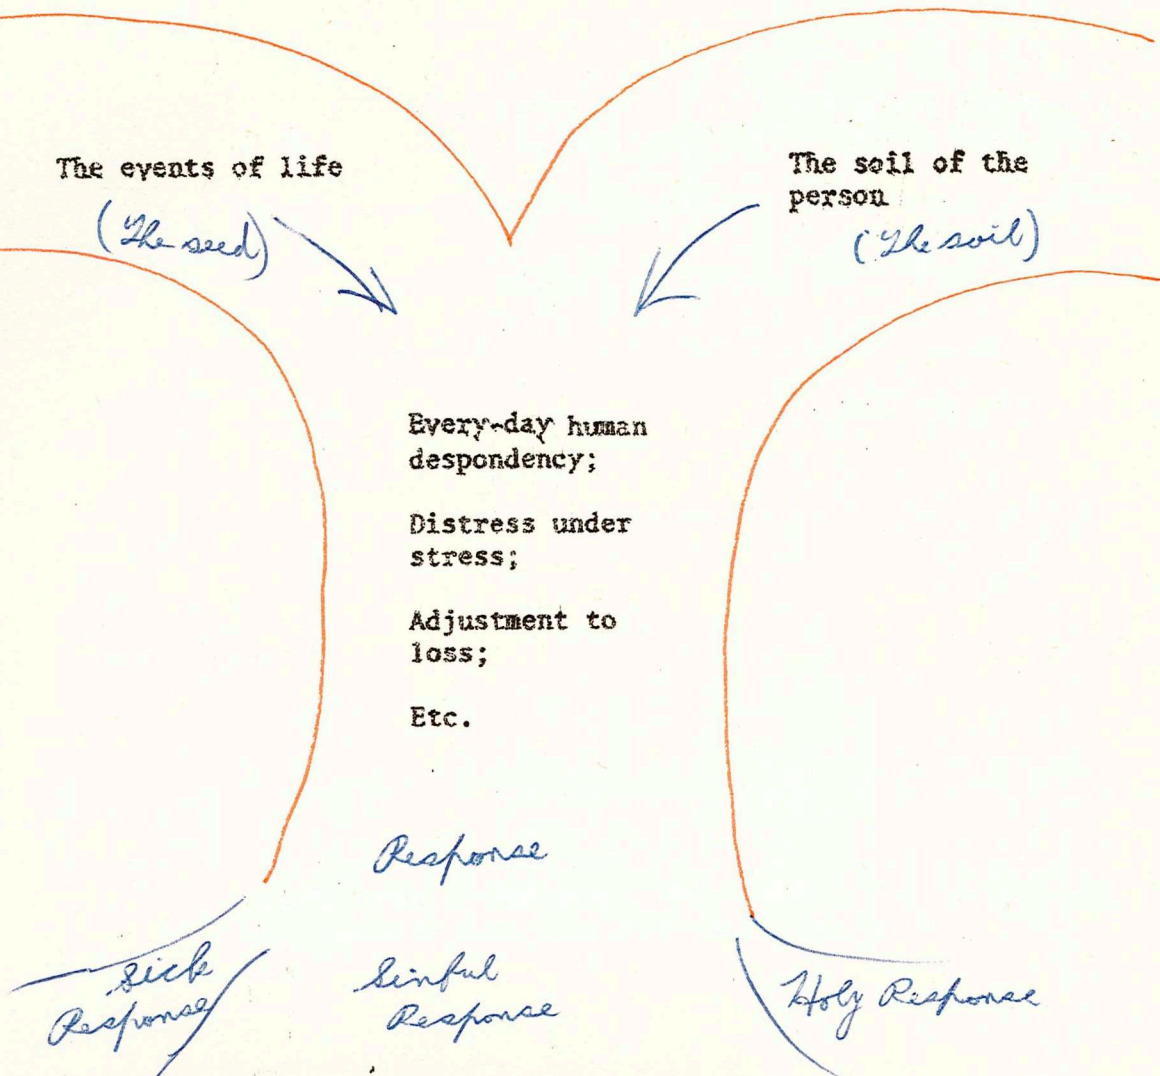 The events of life
(The seed)
The soil of the
person
(The soil)
Every-day human
despondency;
Distress under
stress;
Adjustment to
loss;
Etc.
Response
Sick
Response
Sinful
Response
Holy Response